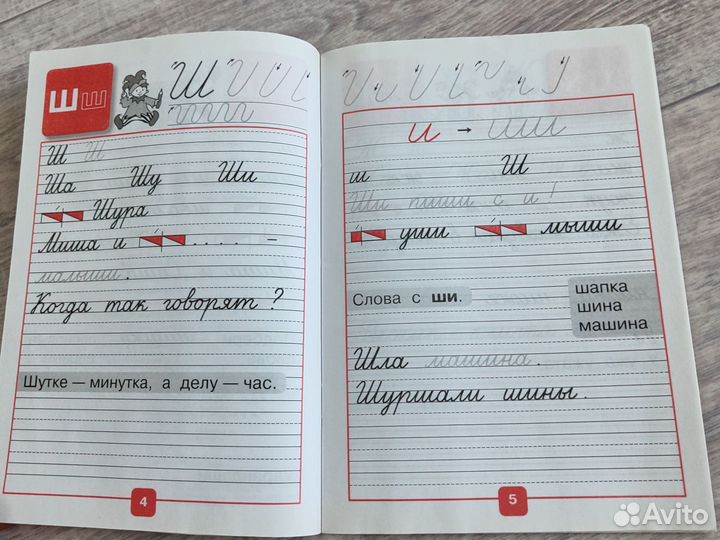 Ш ш
Ш
Ш Ш
Ша Шу Ши
Шура
Миша и . . . . –
малыши.
Когда так говорят?
Шутке — минутка, а делу — час.
4
и → ш
ш Ш
Ши пиши с и!
уши мыши
Слова с ши.
шапка
шина
машина
Шла машина.
Шуршали шины.
5
Avito